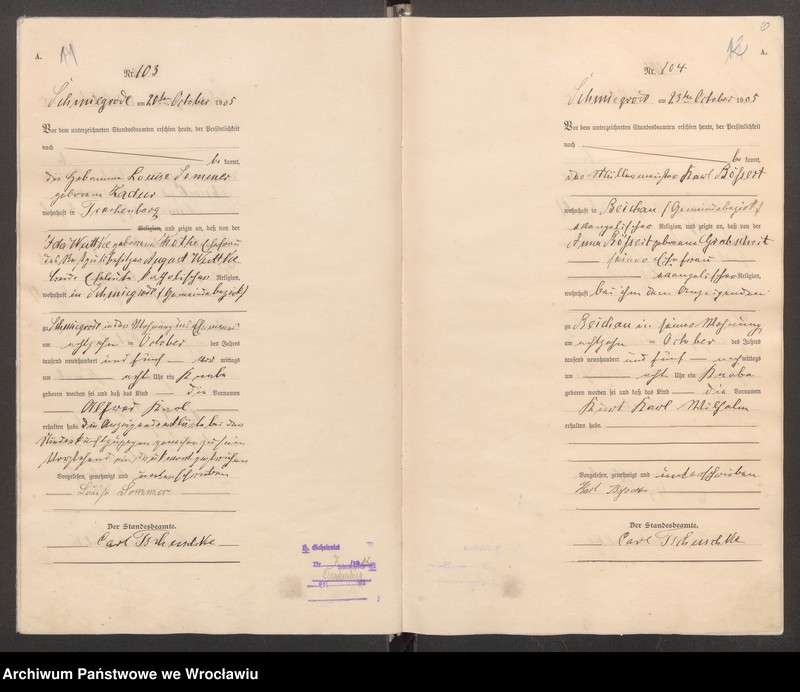 A.
11
Nr. 103
Schmiegrode am 20ten October 1905
Vor dem unterzeichneten Standesbeamten erschien heute, der Persönlichkeit
nach
be kannt,
die Hebamme Louise Sommer
geborene Kadur
wohnhaft in Trachenberg
Religion, und zeigte an, daß von der
Ida Wuttke geborene Mothe Ehefrau
August Wuttke
katholischer Religion,
wohnhaft in Schmiegrode (Gemeindebezirk)
zu Schmiegrode in der Wohnung des Ehemanns
am achtzehn ten October des Jahres
tausend neunhundert und fünf vor mittags
um acht Uhr ein Knabe
geboren worden sei und daß das Kind die Vornamen
Alfred Karl
erhalten habe. Die Anzeigende erklärte, bei der
Niederkunft zugegen gewesen zu sein
Vorstehend ein Druckwort gestrichen
Vorgelesen, genehmigt und unterschrieben
Louise Sommer
Der Standesbeamte.
Carl Tscheuschke
12
6
A.
Nr. 104
Schmiegrode am 23ten October 1905
Vor dem unterzeichneten Standesbeamten erschien heute, der Persönlichkeit
nach
be kannt,
der Müllermeister Karl Bössert
wohnhaft in Beichau (Gemeindebezirk)
evangelischer Religion, und zeigte an, daß von der
Anna Bössert geborene Grabscheit
seiner Ehefrau
evangelischer Religion,
wohnhaft bei ihm dem Anzeigenden
zu Beichau in seiner Wohnung
am achtzehn ten October des Jahres
tausend neunhundert und fünf nach mittags
um acht Uhr ein Knabe
geboren worden sei und daß das Kind die Vornamen
Kurt Karl Wilhelm
erhalten habe.
Vorgelesen, genehmigt und unterschrieben
Karl
Der Standesbeamte.
Carl Tscheuschke
Archiwum Państwowe we Wrocławiu